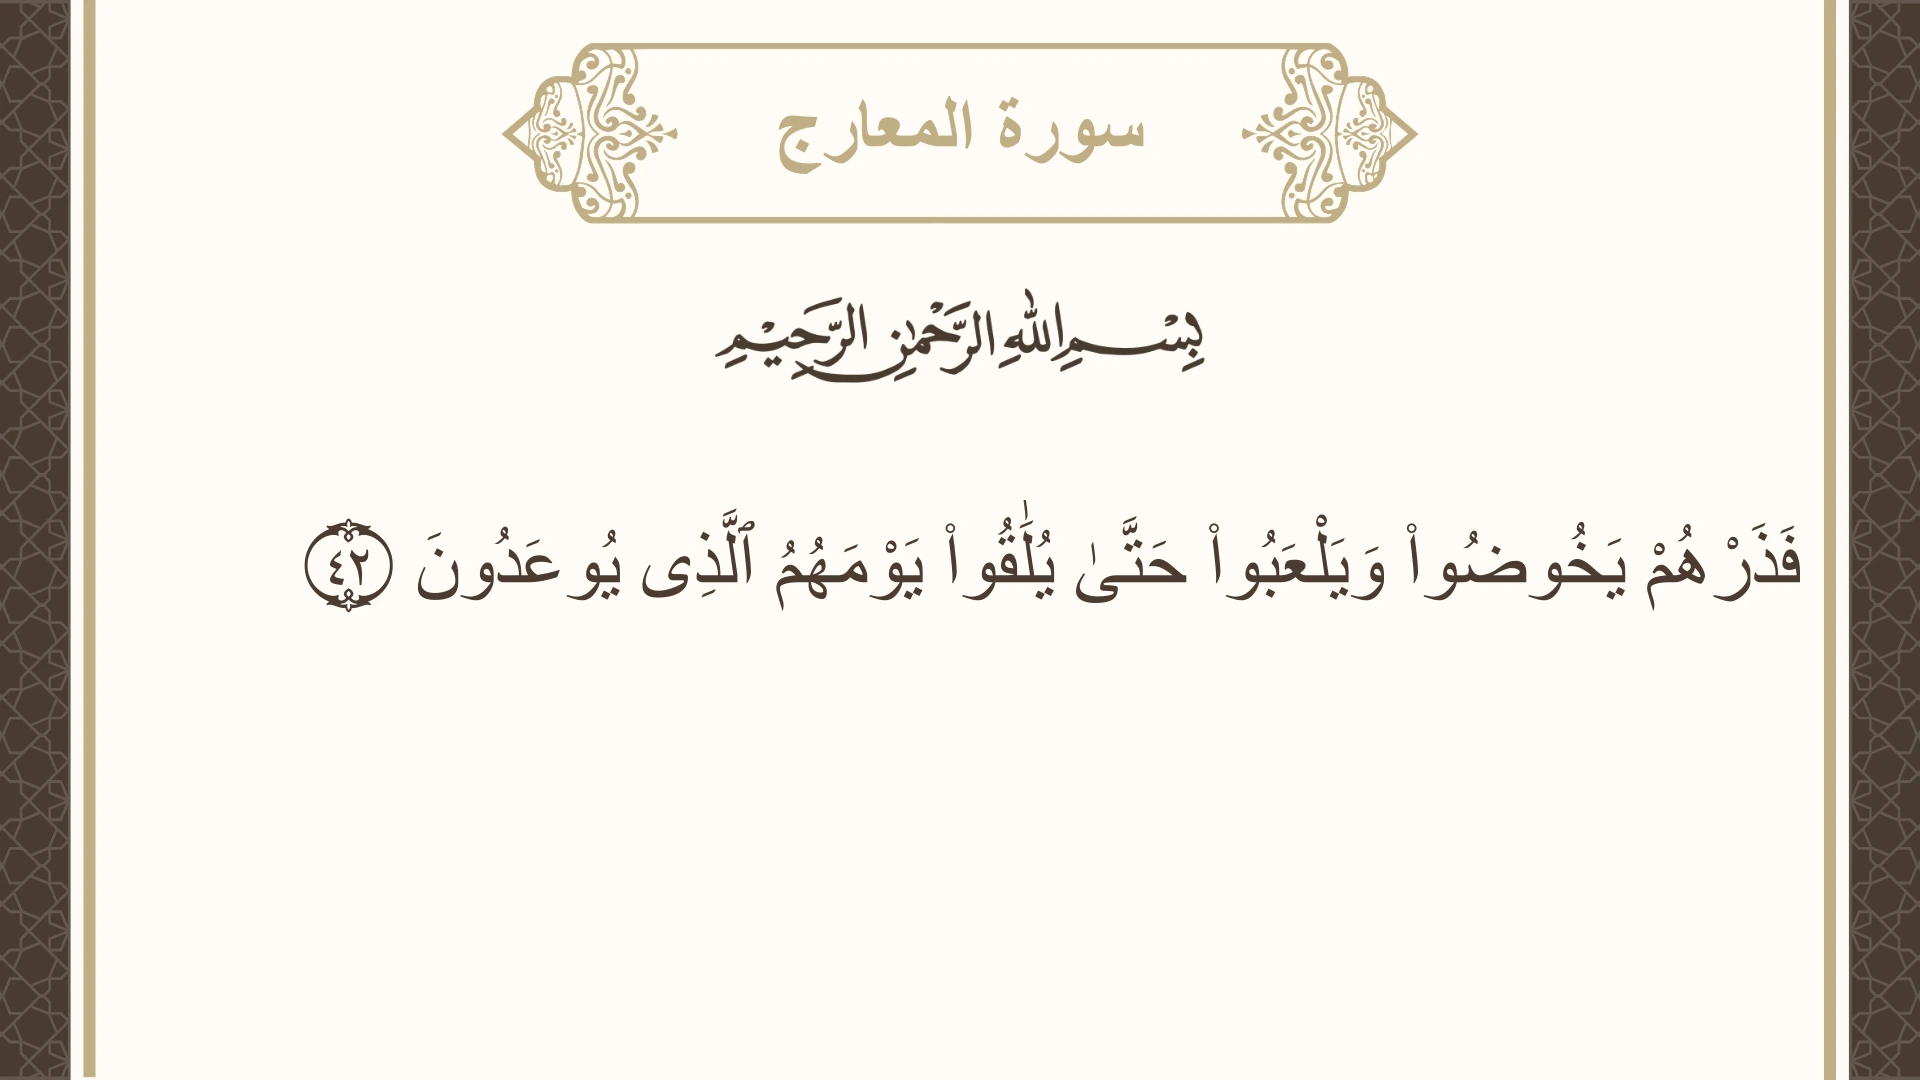 سورة المعارج
بِسْمِ اللهِ الرَّحْمٰنِ الرَّحِيْمِ
فَذَرْهُمْ يَخُوضُوا۟ وَيَلْعَبُوا۟ حَتَّىٰ يُلَـٰقُوا۟ يَوْمَهُمُ ٱلَّذِى يُوعَدُونَ ٤٢